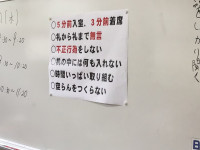 ○５分前入室、３分前着席
○礼から礼まで無言
○不正行為をしない
○机の中には何も入れない
○時間いっぱい取り組む
○空らんをつくらない